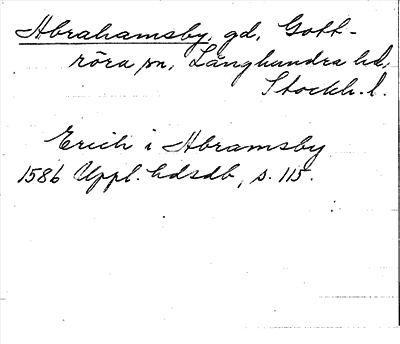 Abrahamsby, gd, Gott-
röra sn, Långhundra hd,
Stockh. l.
Erich i Abramsby
1586 Uppl. hdsdb, s. 115.